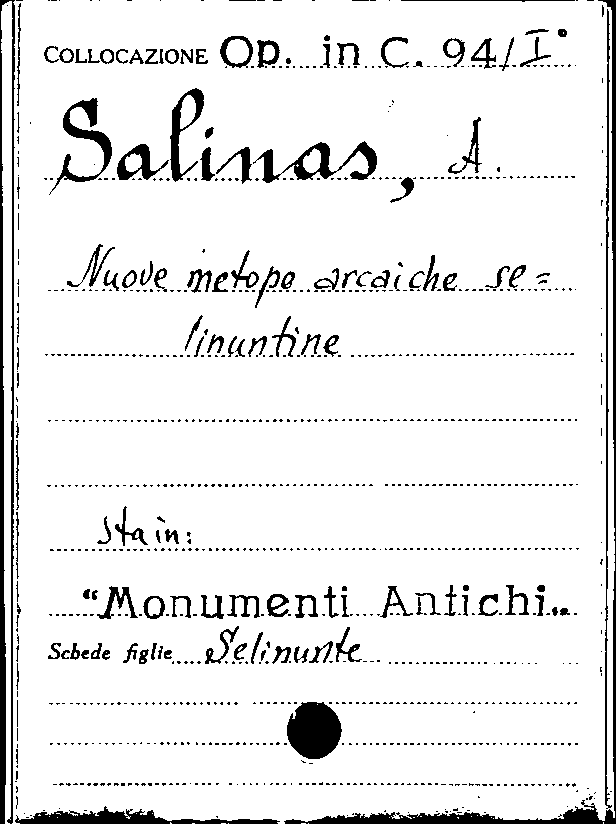 COLLOCAZIONE Op. in C. 94/I°
Salinas, A.
Nuove metope arcaiche se=
linuntine
sta in:
"Monumenti Antichi„
Schede figlie Selinunte